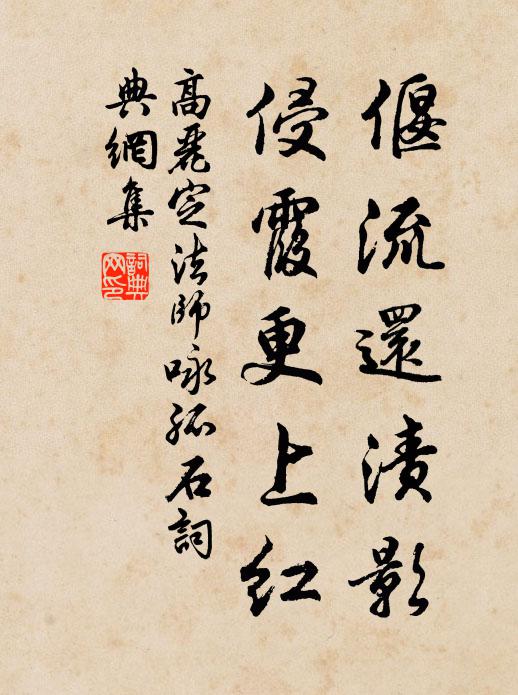 偃流還漬影
侵霞更上紅
高麗定法師咏孤石詞
典網集
詞典網印